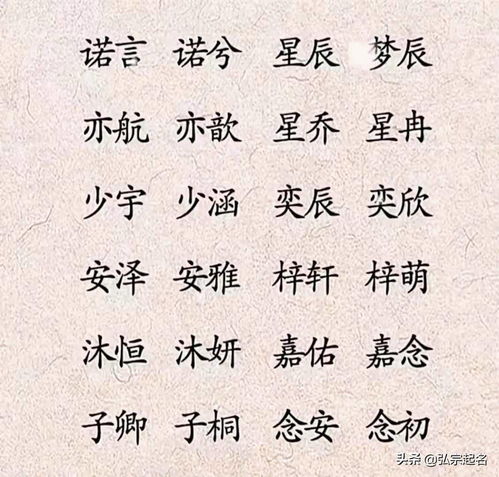 诺言 诺兮 星辰 梦辰
亦航 亦歆 星乔 星冉
少宇 少涵 奕辰 奕欣
安泽 安雅 梓轩 梓萌
沐恒 沐妍 嘉佑 嘉念
子卿 子桐 念安 念初
头条 @弘宗起名